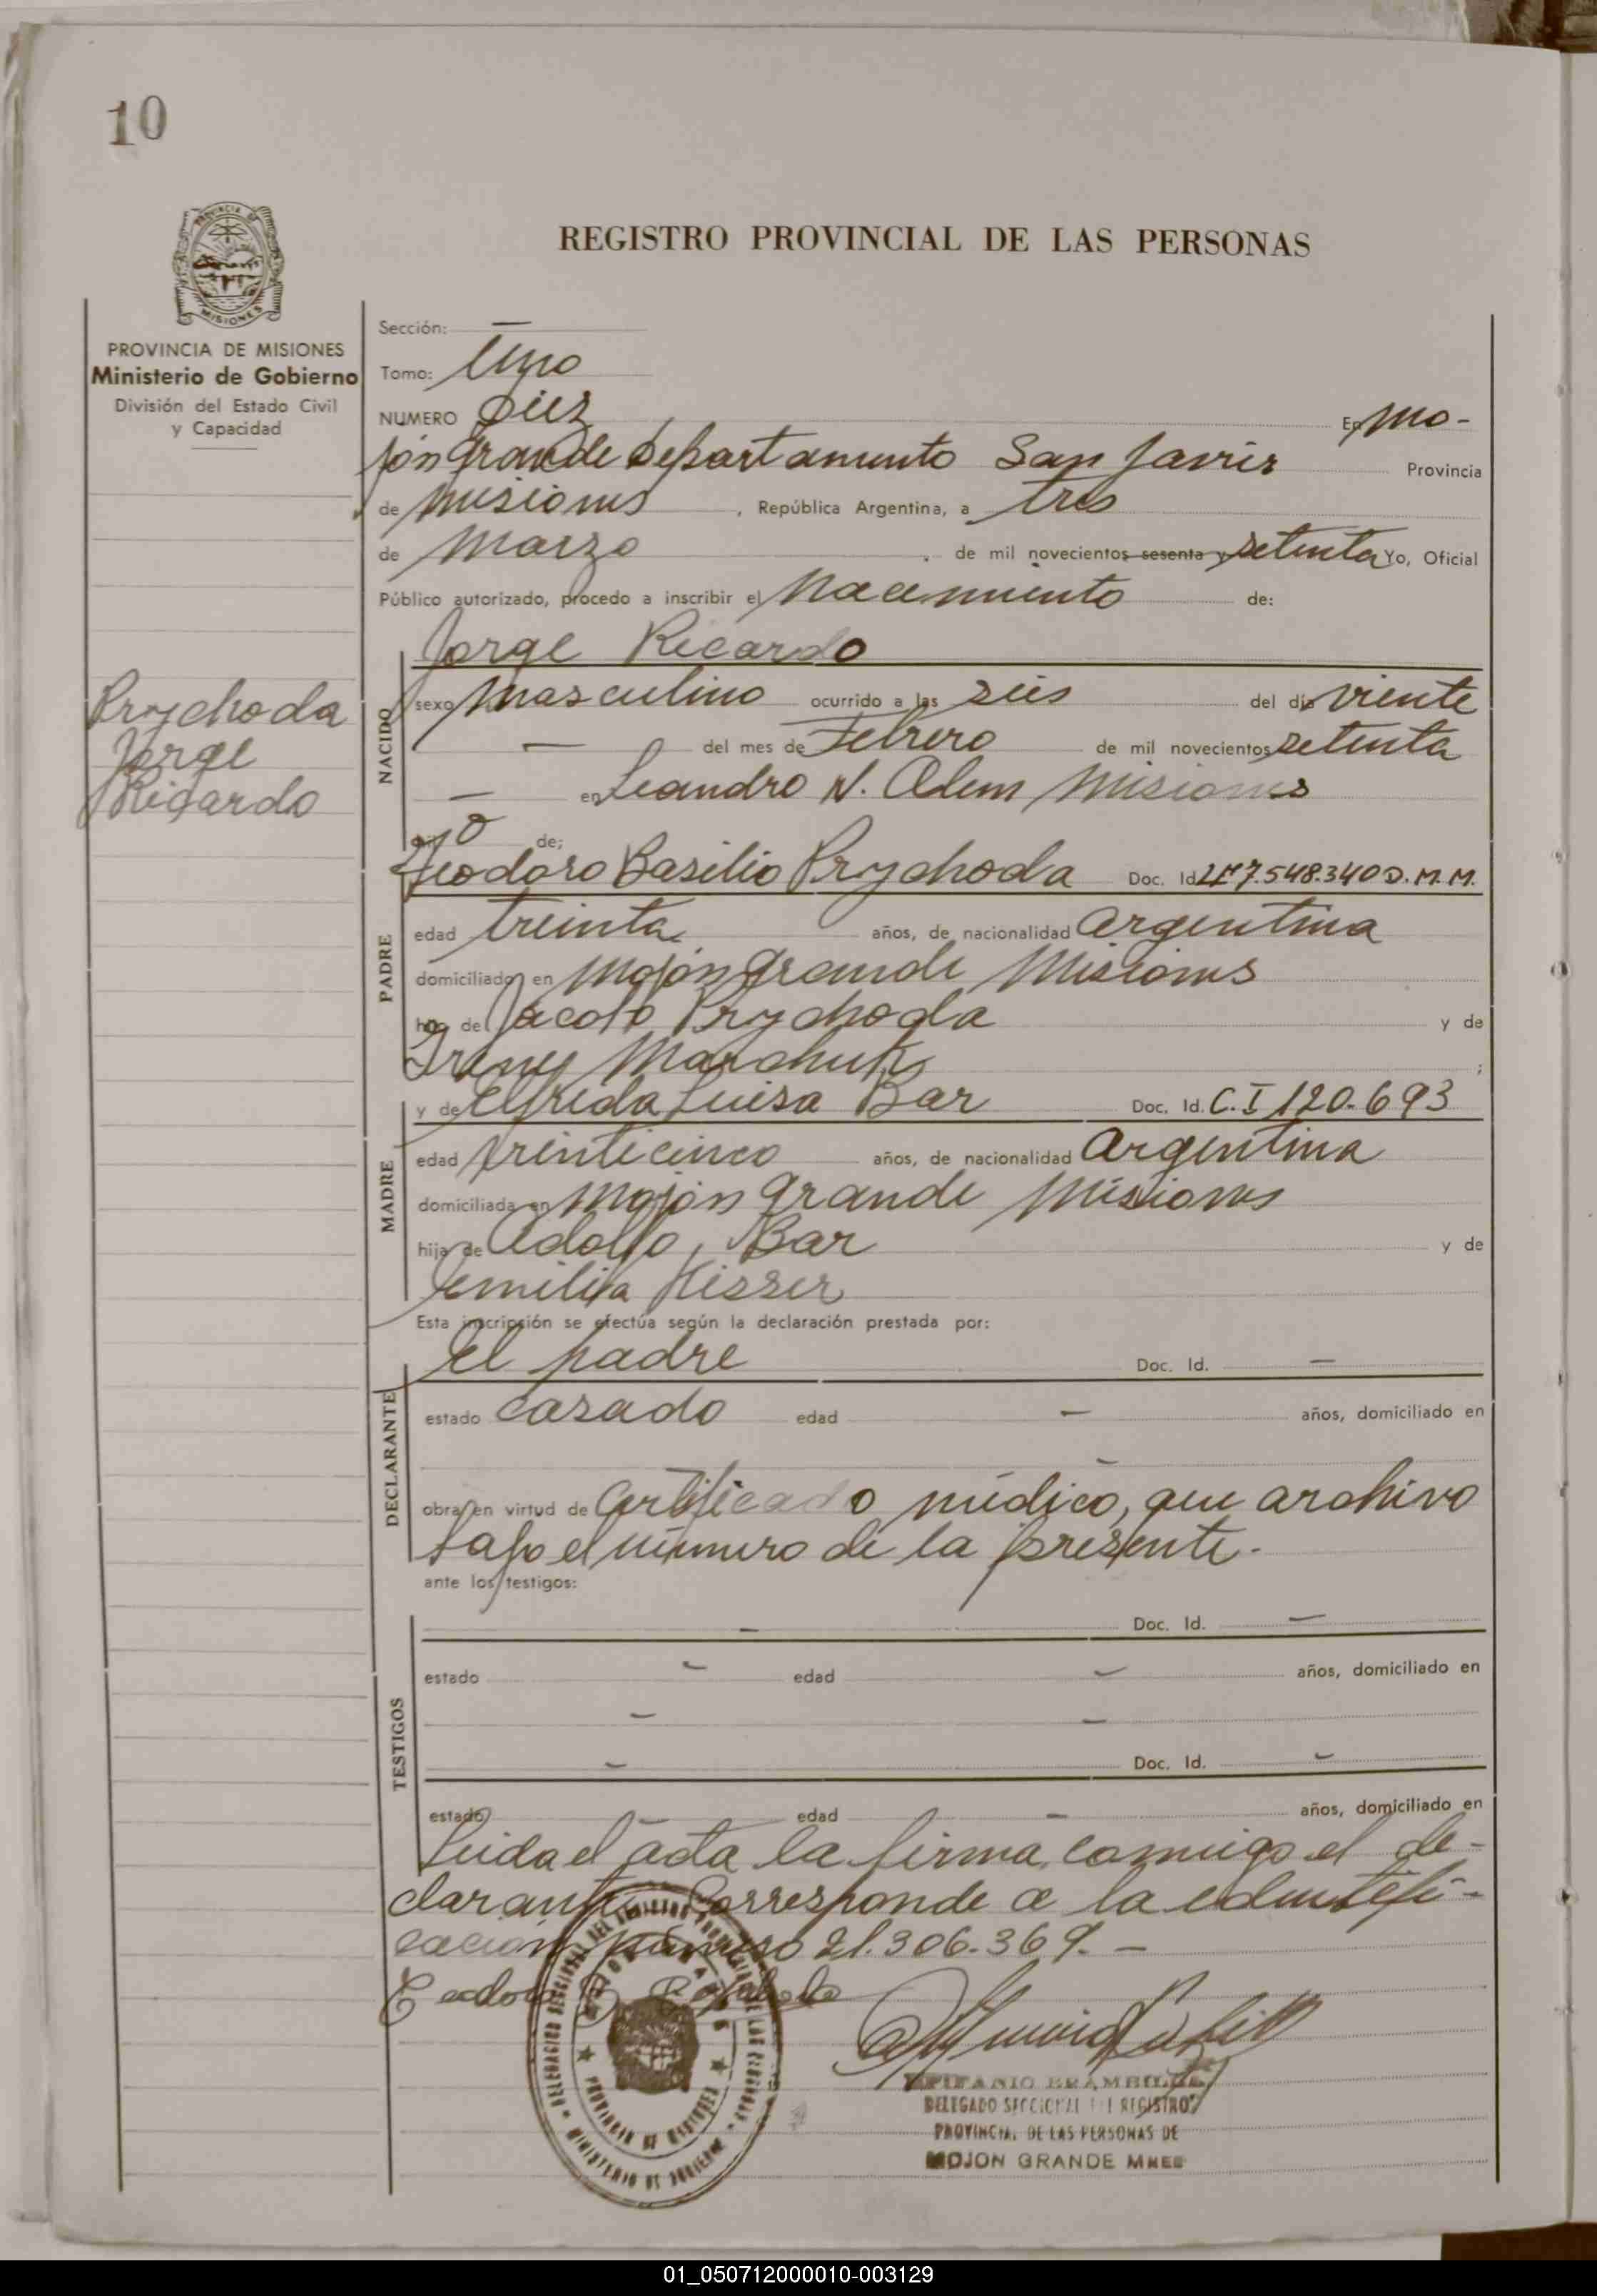 10
REGISTRO PROVINCIAL DE LAS PERSONAS
PROVINCIA DE MISIONES
Ministerio de Gobierno
División del Estado Civil
y Capacidad
Sección: —
Tomo: Uno
NUMERO Diez En Mo-
jón Grande Departamento San Javier Provincia
de Misiones, República Argentina, a tres
de Marzo de mil novecientos sesenta y setenta Yo, Oficial
Público autorizado, procedo a inscribir el Nacimiento de:
Prychoda
Jorge
Ricardo
NACIDO
Jorge Ricardo
sexo masculino ocurrido a las seis del día viente
— del mes de Febrero de mil novecientos setenta
— en Leandro N. Alem Misiones
hijo de;
PADRE
Teodoro Basilio Prychoda Doc. Id. LE 7.548.340 D.M.M.
edad treinta años, de nacionalidad Argentina
domiciliado en Mojón Grande Misiones
hijo de Jacobo Prychoda y de
Ireny Marchuk ;
MADRE
y de Elfrida Luisa Bar Doc. Id. C.I 120.693
edad veinticinco años, de nacionalidad Argentina
domiciliada en Mojón Grande Misiones
hija de Adolfo Bar y de
Emilia Hisser
Esta inscripción se efectúa según la declaración prestada por:
DECLARANTE
el padre Doc. Id. —
estado casado edad — años, domiciliado en
—
obra en virtud de Certificado médico, que archivo
bajo el número de la presente.
ante los testigos:
TESTIGOS
— Doc. Id. —
estado — edad — años, domiciliado en
— —
— Doc. Id. —
estado edad — años, domiciliado en
Leida el acta la firma comigo el de-
clarante. Corresponde a la edentifi-
cación número 21.306.369.—
PROVINCIA DE MISIONES
MINISTERIO DE GOBIERNO
EPIFANIO BRAMBILLA
DELEGADO SECCIONAL DEL REGISTRO
PROVINCIAL DE LAS PERSONAS DE
MOJON GRANDE MNES
01_050712000010-003129